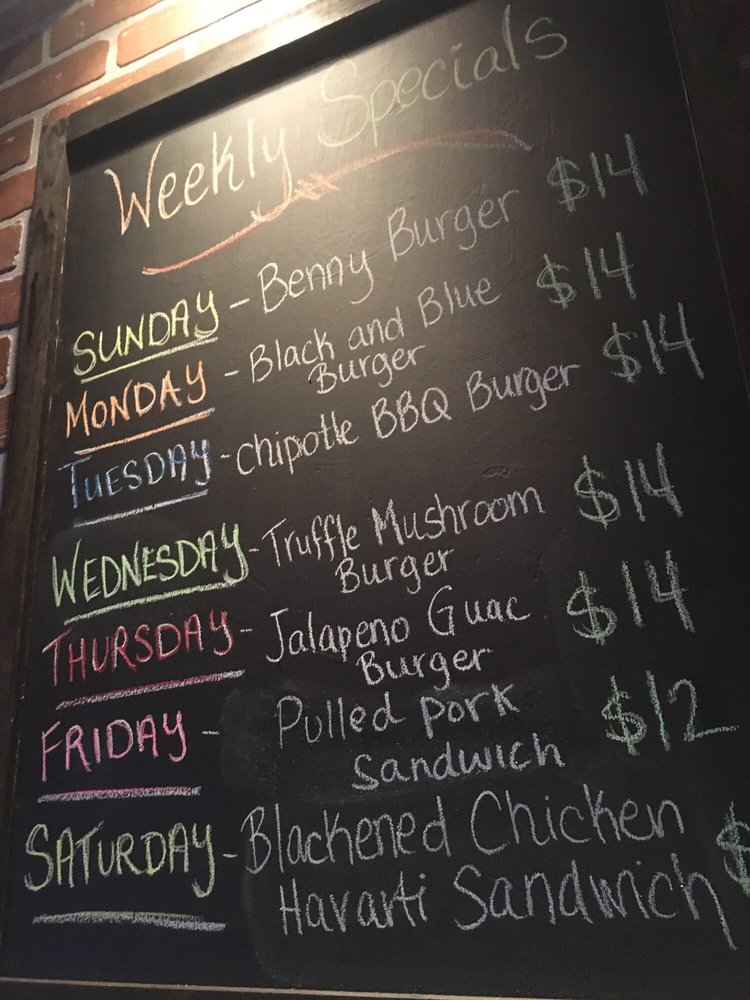 Weekly Specials
SUNDAY - Benny Burger $14
MONDAY - Black and Blue $14
Burger
TUESDAY - chipotle BBQ Burger $14
WEDNESDAY - Truffle Mushroom $14
Burger
THURSDAY - Jalapeno Guac $14
Burger
FRIDAY - Pulled pork $12
Sandwich
SATURDAY - Blackened Chicken $
Havarti Sandwich